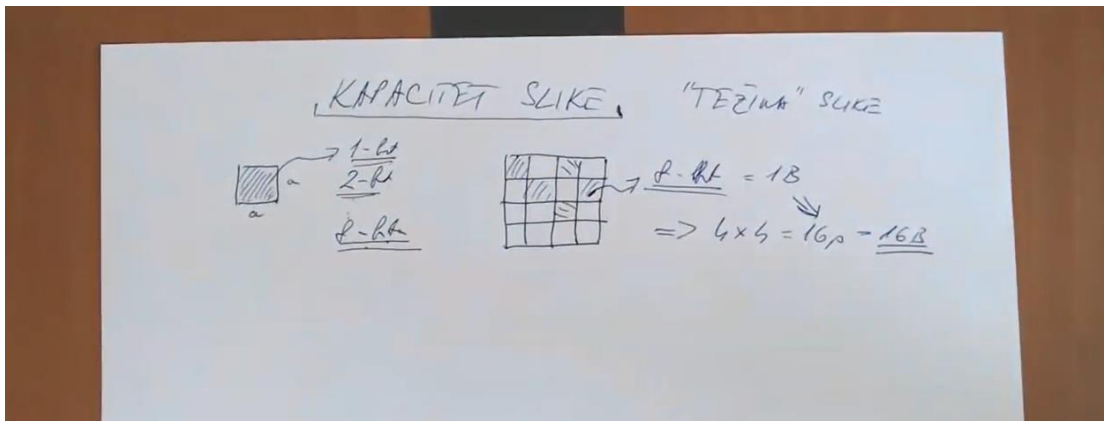 KAPACITET SLIKE, "TEŽINA" SLIKE
1-bit
a
2-bit
a
8-bita
8-bit = 1B
=> 4x4 = 16p = 16B